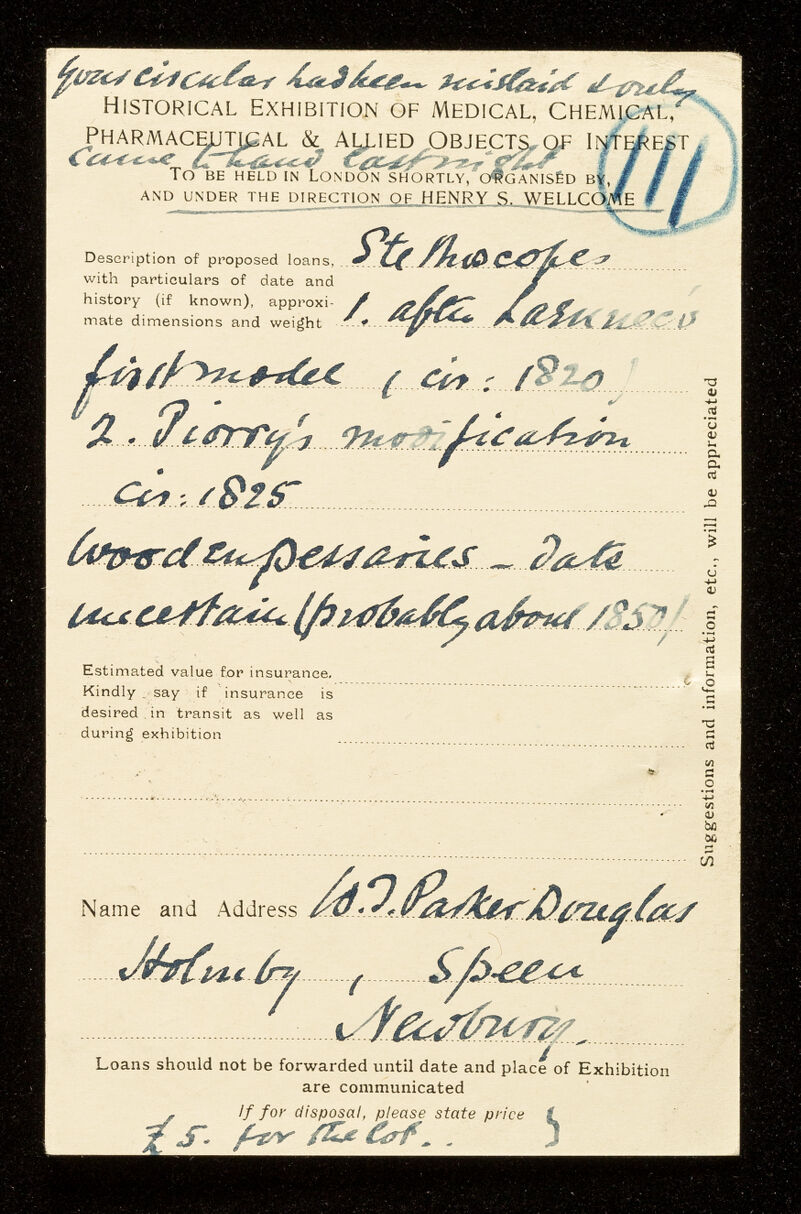 Your circular had been mislaid & only
HISTORICAL EXHIBITION OF MEDICAL, CHEMICAL,
PHARMACEUTICAL & ALLIED OBJECTS OF INTEREST
came to hand last night
TO BE HELD IN LONDON SHORTLY, ORGANISED BY,
AND UNDER THE DIRECTION OF HENRY S. WELLCOME
111
Description of proposed loans, Stethoscopes
with particulars of date and
history (if known), approxi-
mate dimensions and weight 1. after Laennec's
first model (cir: 1820)
2. Piorry's modification
cir: 1825
Wooden pessaries – date
uncertain (probably about 1850)
Estimated value for insurance.
Kindly say if insurance is
desired in transit as well as
during exhibition
Suggestions and information, etc., will be appreciated
Name and Address W. T. Parker Douglas
Holmby, Speen
Newbury.
Loans should not be forwarded until date and place of Exhibition
are communicated
If for disposal, please state price }
£5. for the lot..